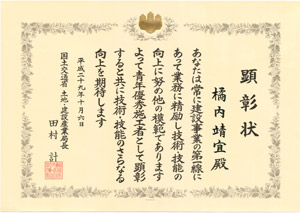 顕彰状
橘内靖宜殿
あなたは常に建設事業の第一線に
あって業務に精励し技術・技能の
向上に努め他の模範であります
よって青年優秀施工者として顕彰
すると共に技術・技能のさらなる
向上を期待します
平成二十九年十月六日
国土交通省 土地・建設産業局長
田村 計